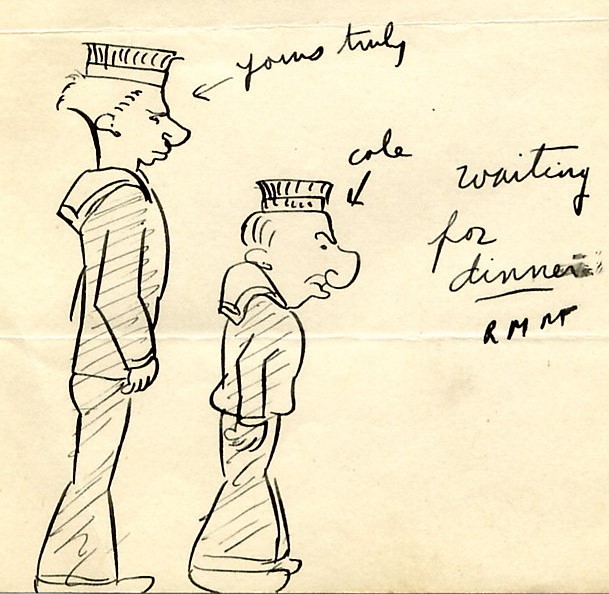 yours truly
cole
waiting
for
dinner